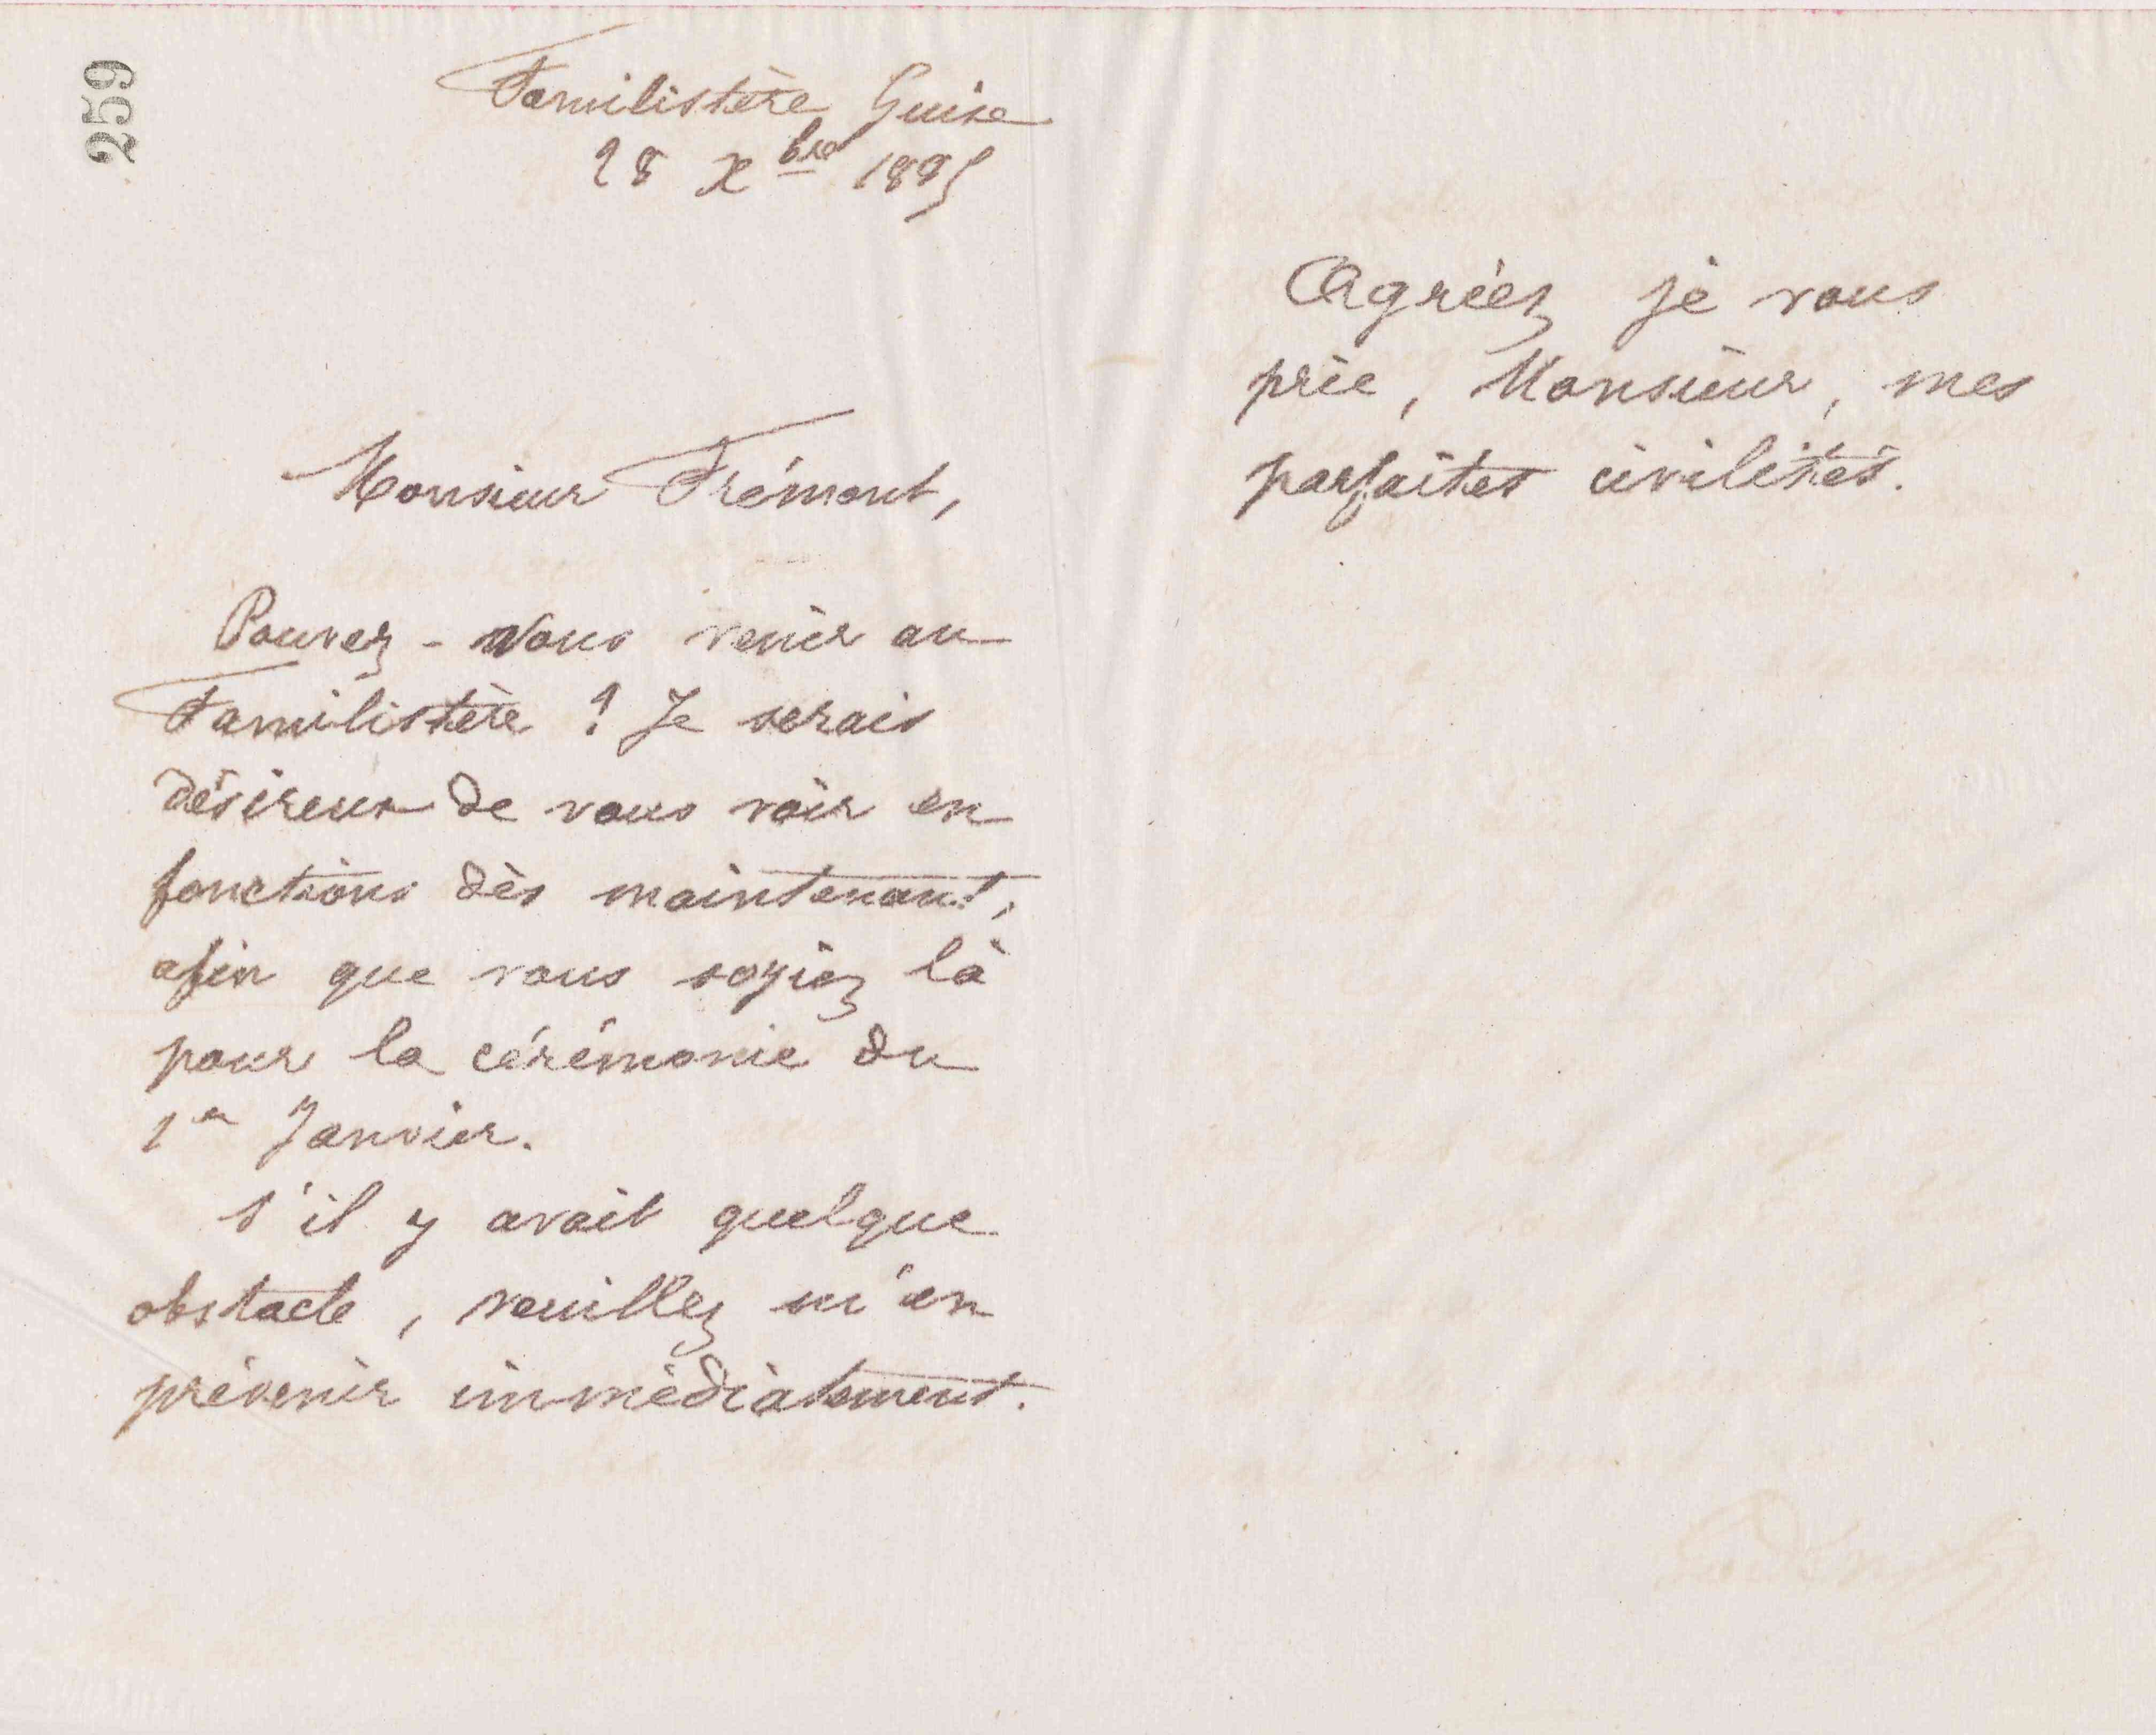 259
Familistère Guise
28 Xbre 1885
Monsieur Frémont,
Pouvez-vous venir au
Familistère ? Je serais
désireux de vous voir en
fonctions dès maintenant,
afin que vous soyiez là
pour la cérémonie du
1er Janvier.
S'il y avait quelque
obstacle, veuillez m'en
prévenir immédiatement.
Agréez je vous
prie, Monsieur, mes
parfaites civilités.